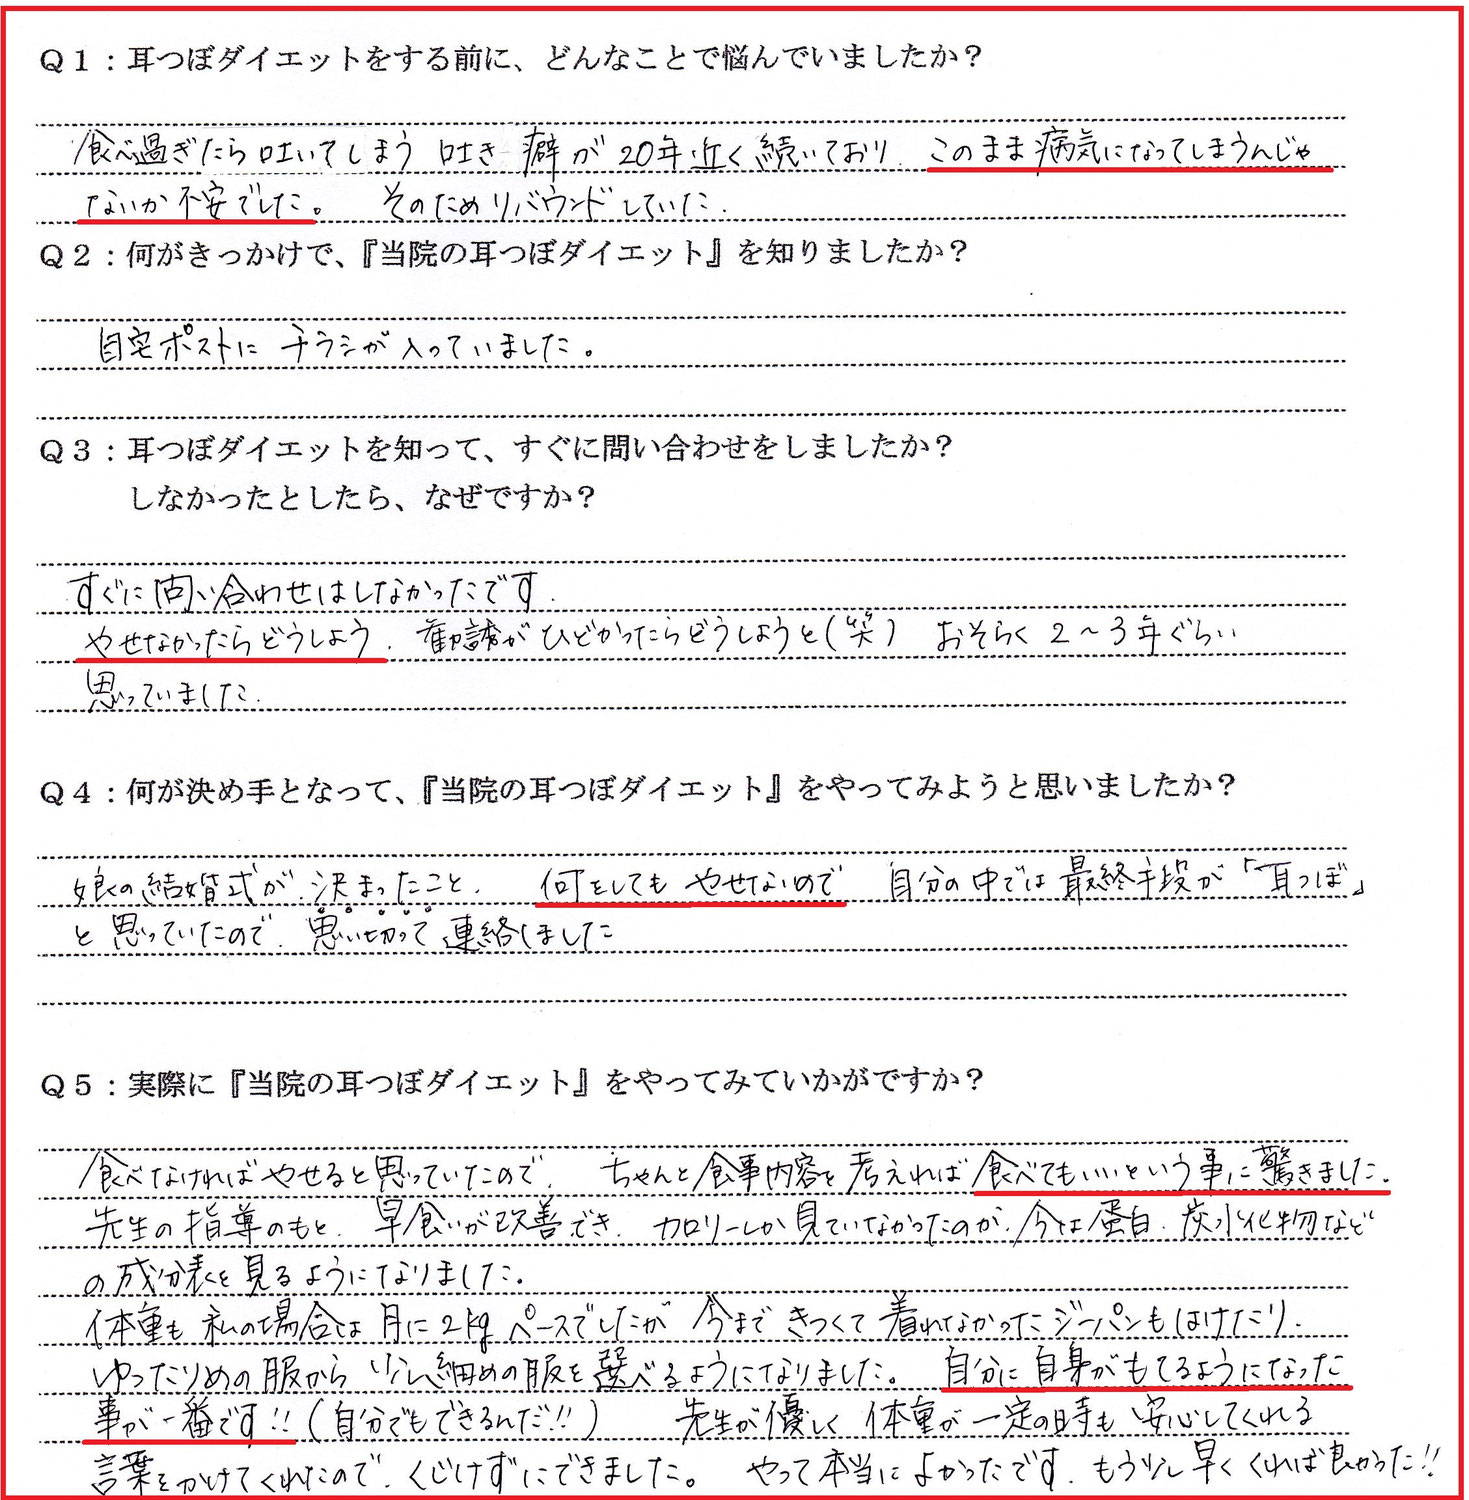 Q1：耳つぼダイエットをする前に、どんなことで悩んでいましたか？
食べ過ぎたら吐いてしまう 吐き癖が20年近く続いており、このまま病気になってしまうんじゃ
ないか不安でした。 そのためリバウンドしていた.
Q2：何がきっかけで、『当院の耳つぼダイエット』を知りましたか？
自宅ポストに チラシが入っていました。
Q3：耳つぼダイエットを知って、すぐに問い合わせをしましたか？
しなかったとしたら、なぜですか？
すぐに問い合わせはしなかったです.
やせなかったらどうしよう. 勧誘がひどかったらどうしようと(笑) おそらく2〜3年ぐらい
思っていました.
Q4：何が決め手となって、『当院の耳つぼダイエット』をやってみようと思いましたか？
娘の結婚式が決まったこと. 何をしてもやせないので 自分の中では最終手段が「耳つぼ」
と思っていたので、思い切って連絡しました
Q5：実際に『当院の耳つぼダイエット』をやってみていかがですか？
食べなければやせると思っていたので、 ちゃんと食事内容を考えれば食べてもいいという事に驚きました。
先生の指導のもと、早食いが改善でき、カロリーしか見ていなかったのが、今は蛋白、炭水化物など
の成分表を見るようになりました。
体重も私の場合は月に2kgペースでしたが 今まできつくて着れなかったジーパンもはけたり、
ゆったりめの服から少し細めの服を選べるようになりました。 自分に自身がもてるようになった
事が一番です!!(自分でもできるんだ!!) 先生が優しく体重が一定の時も安心してくれる
言葉をかけてくれたので、くじけずにできました。 やって本当によかったです. もう少し早くくれば良かった!!